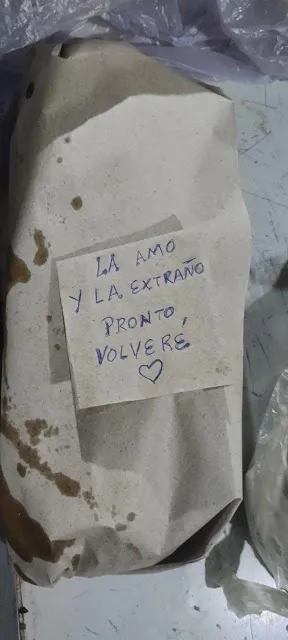 LA AMO
Y LA EXTRAÑO
PRONTO,
VOLVERÉ
♡